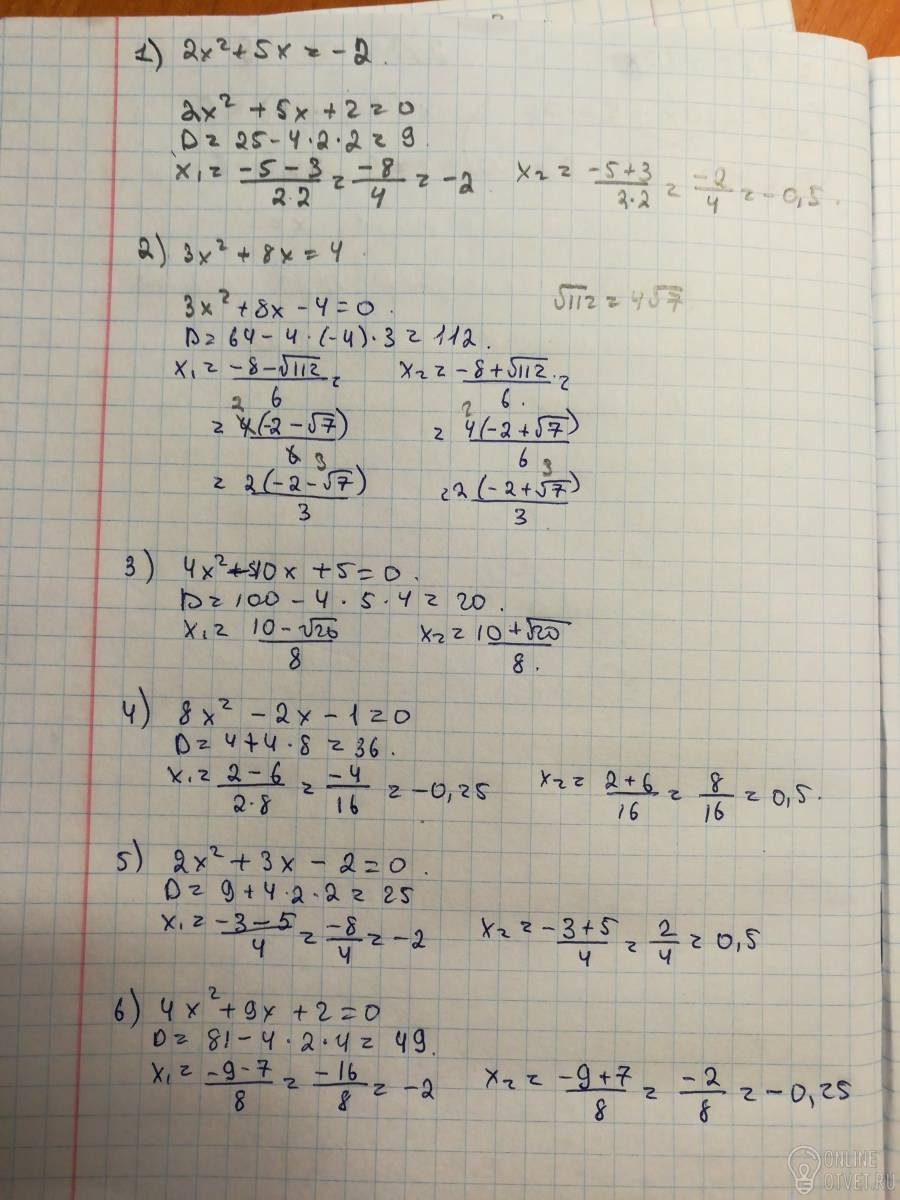 1) 2x² + 5x = -2.
2x² + 5x + 2 = 0
D = 25 - 4·2·2 = 9.
x₁ = (-5-3)/(2·2) = -8/4 = -2 x₂ = (-5+3)/(2·2) = -2/4 = -0,5.
2) 3x² + 8x = 4.
3x² + 8x - 4 = 0. √112 = 4√7
D = 64 - 4·(-4)·3 = 112.
x₁ = (-8-√112)/6 = x₂ = (-8+√112)/6. =
= 4(-2-√7)/6 = 4(-2+√7)/6
2 3 2 3
= 2(-2-√7)/3 = 2(-2+√7)/3
3) 4x² - 10x + 5 = 0.
D = 100 - 4·5·4 = 20.
x₁ = (10-√20)/8 x₂ = (10+√20)/8.
4) 8x² - 2x - 1 = 0
D = 4+4·8 = 36.
x₁ = (2-6)/(2·8) = -4/16 = -0,25 x₂ = (2+6)/16 = 8/16 = 0,5.
5) 2x² + 3x - 2 = 0.
D = 9+4·2·2 = 25
x₁ = (-3-5)/4 = -8/4 = -2 x₂ = (-3+5)/4 = 2/4 = 0,5
6) 4x² + 9x + 2 = 0
D = 81 - 4·2·4 = 49.
x₁ = (-9-7)/8 = -16/8 = -2 x₂ = (-9+7)/8 = -2/8 = -0,25
ONLINE
OTVET.RU